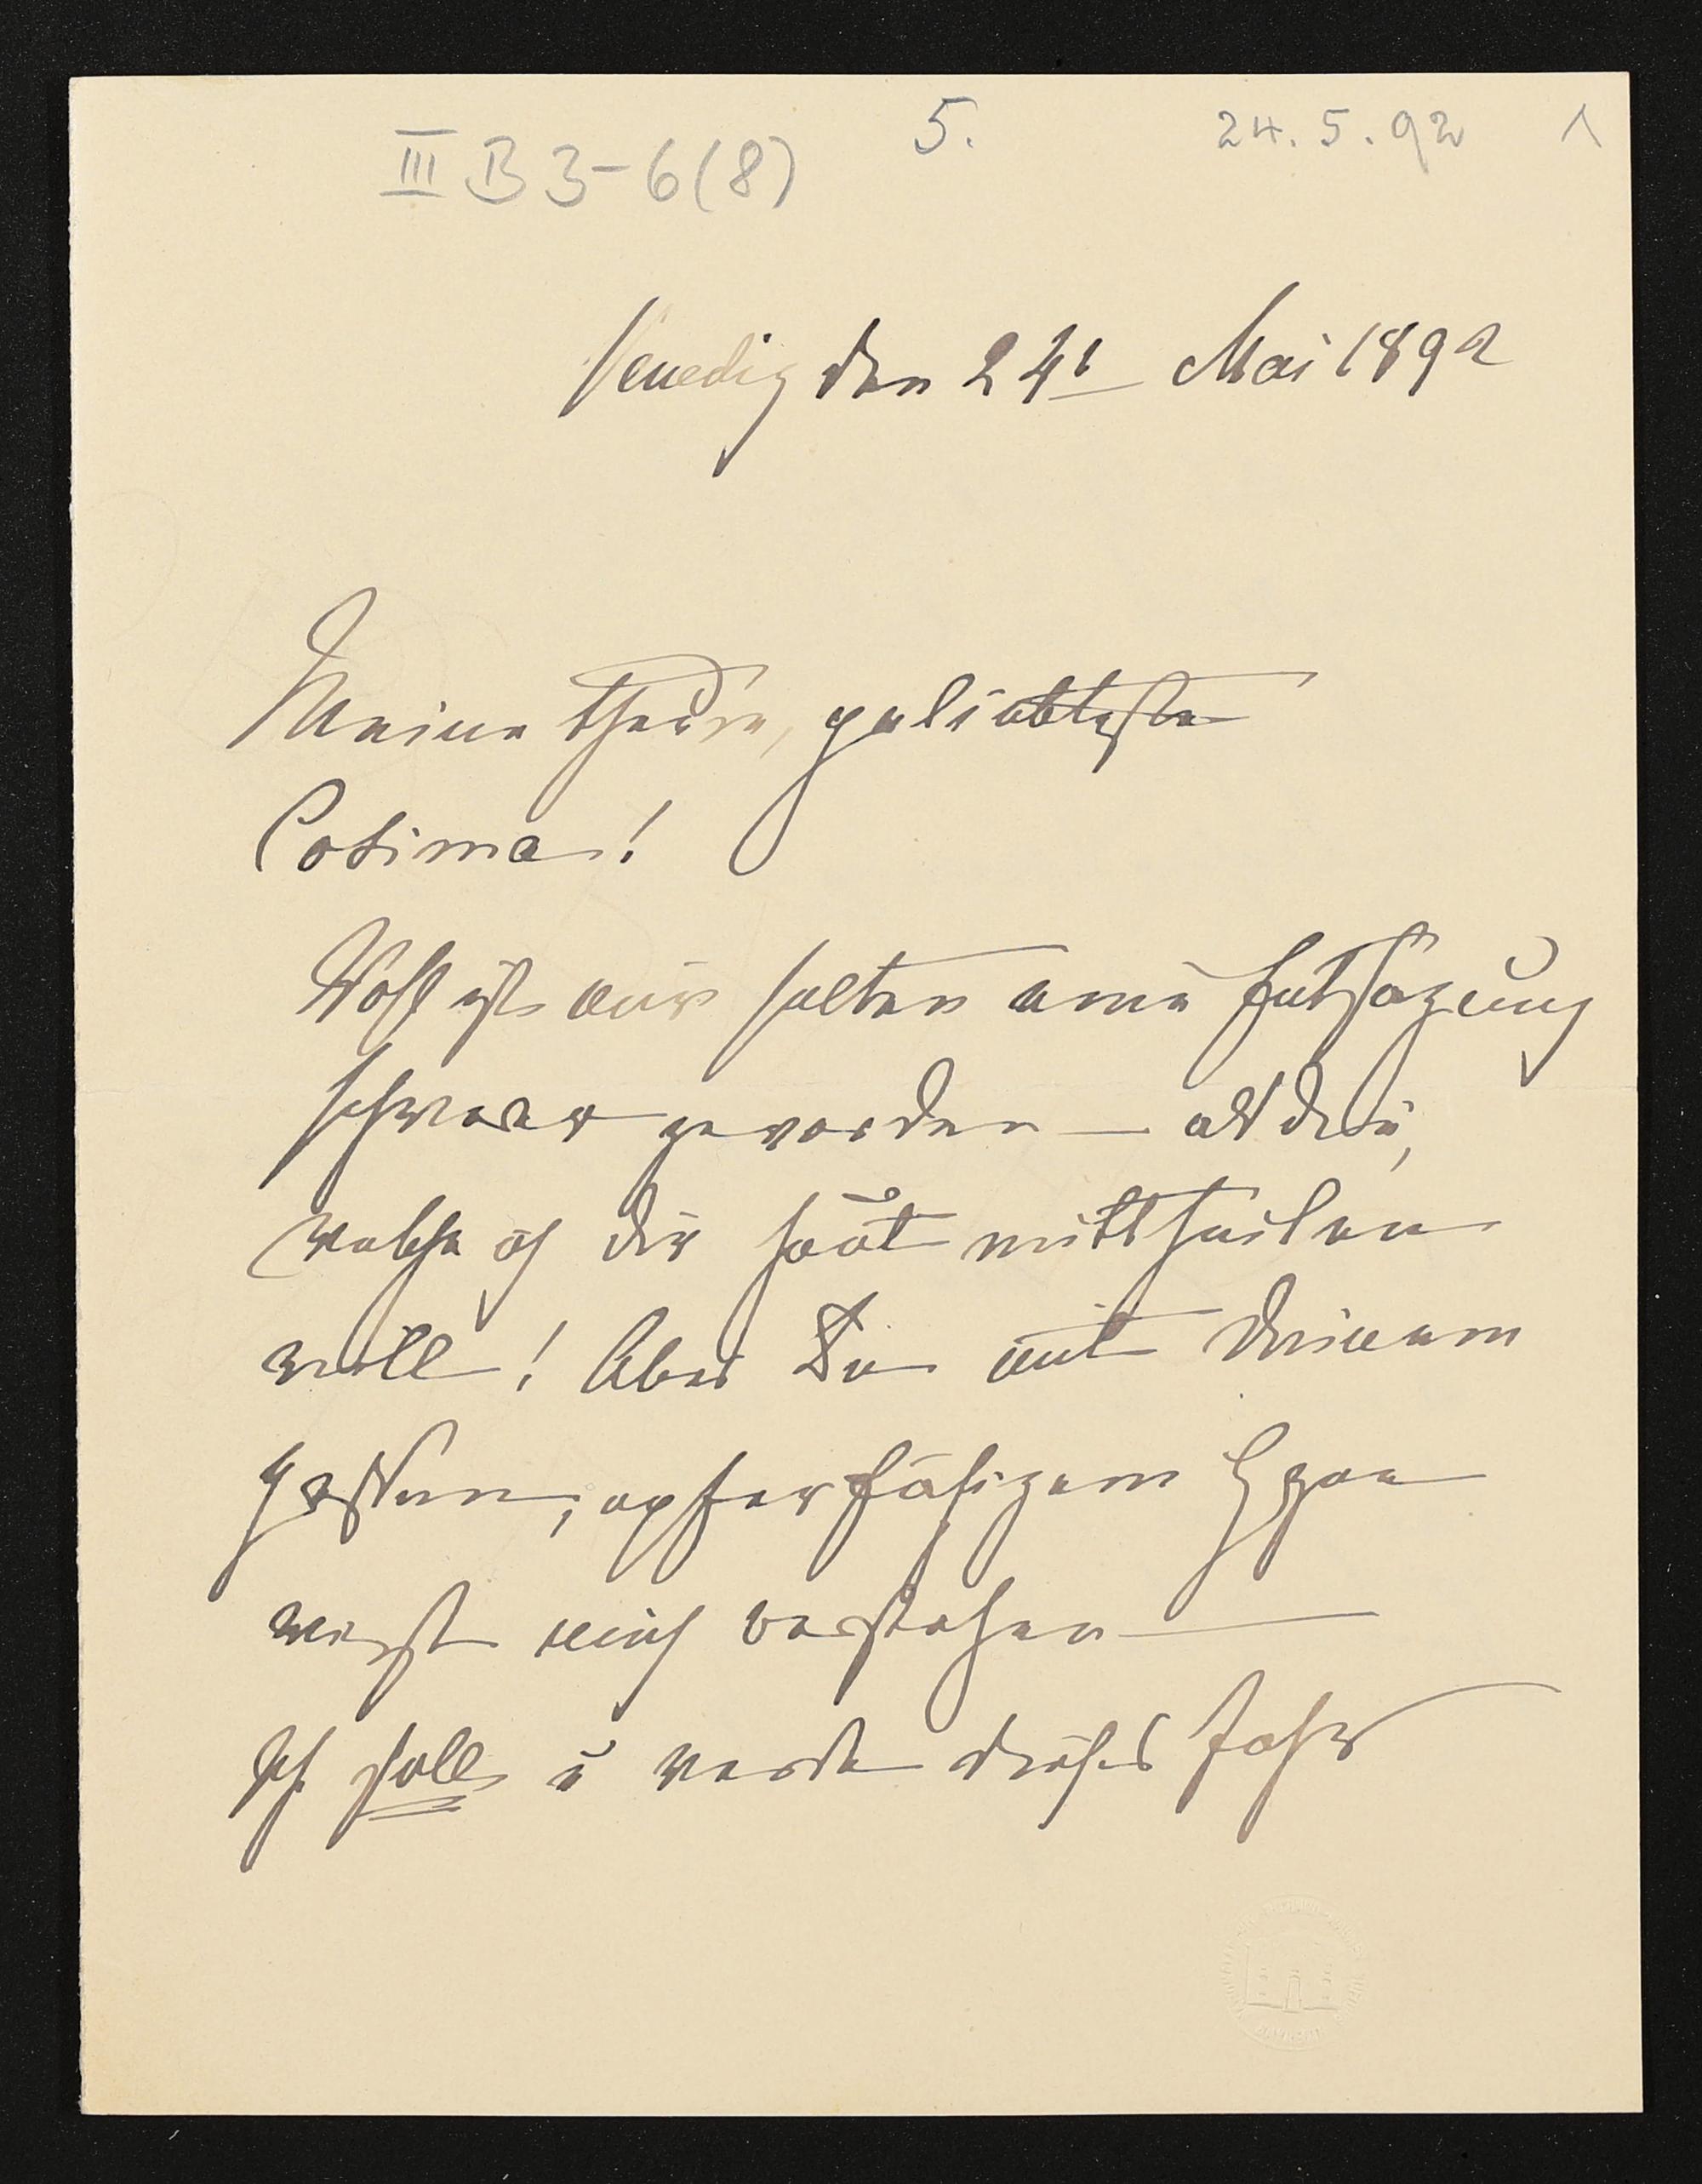 III B 3-6(8)
5.
24.5.92
1
Venedig den 24t Mai 1892
Meine theure, geliebteste
Cosima!
Wohl ist mir selten eine Entsagung
schwerer geworden — als die,
welche ich dir heut mittheilen
will! Aber Du mit Deinem
großem, opferfähigem Herzen
wirst mich verstehen —
Ich soll u werde dieses Jahr